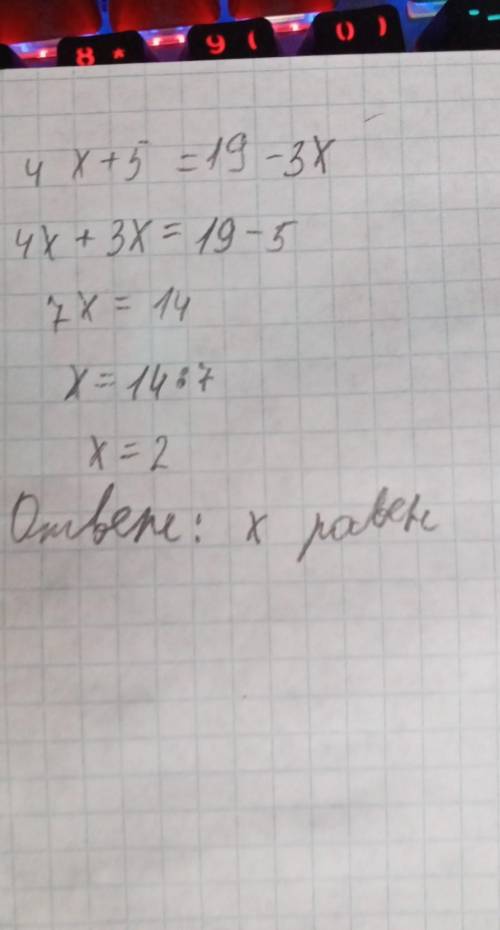 8 * 9 ( 0 )
4 x + 5 = 19 - 3x
4x + 3x = 19 - 5
7x = 14
x = 14 : 7
x = 2
Ответ: x равен